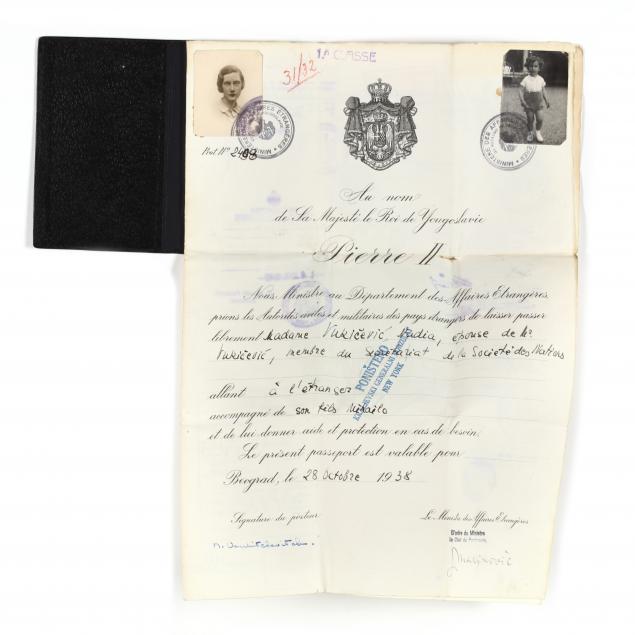 1A CLASSE
31/32
MINISTÈRE DES AFFAIRES ETRANGERES
MINISTÈRE DES AFFAIRES ETRANGERES
Prot. Nº 2488
Au nom
de Sa Majesté le Roi de Yougoslavie
Pierre II
Nous Ministre au Département des Affaires Etrangères,
prions les Autorités civiles et militaires des pays étrangers de laisser passer
librement Madame Vukičević Nadia, épouse de Mr
Vukičević, membre du Secrétariat de la Société des Nations
allant à l'étranger
accompagné de son fils Mihailo
et de lui donner aide et protection en cas de besoin.
Le présent passeport est valable pour
Beograd, le 28 Octobre 1938
PONIŠTENO
NEW YORK
Signature du porteur
Le Ministre des Affaires Etrangères
D'ordre du Ministre